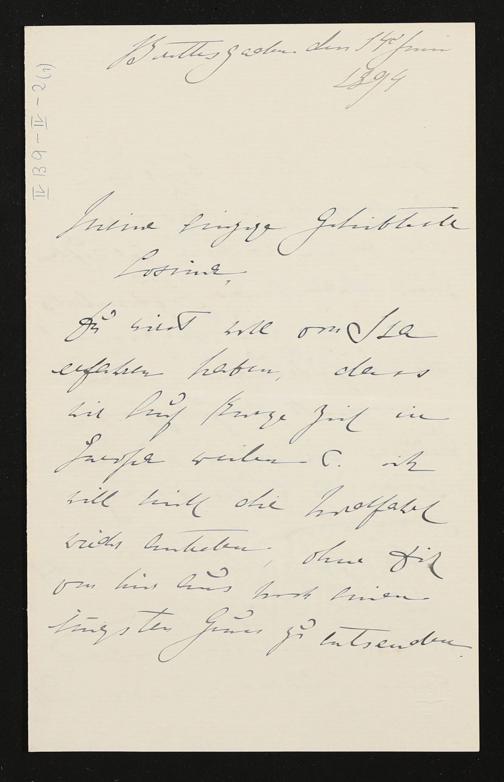 Berchtesgaden den 14ᵗ Juni
1894
IV B 9 - IV - 2 (1)
Meine einzige Geliebteste
Cosima,
Du wirst wohl von Isa
erfahren haben, dass
wir auf kurze Zeit in
Europa weilen u. ich
will nicht die
wieder antreten, ohne Dir
von hier aus noch einen
innigsten Gruss zu entsenden.